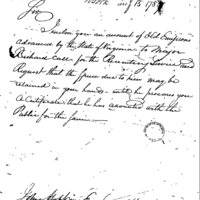 Aug 15 178
Sir
I inclose you an account of Old Emissions
advanced by the State of Virginia to Major
Richard Call for the Recruiting Service and
Request that the same due to him may be
retained in your hands until he procures you
a Certificate that he has accounted with the
Public for the same
John Hopkins